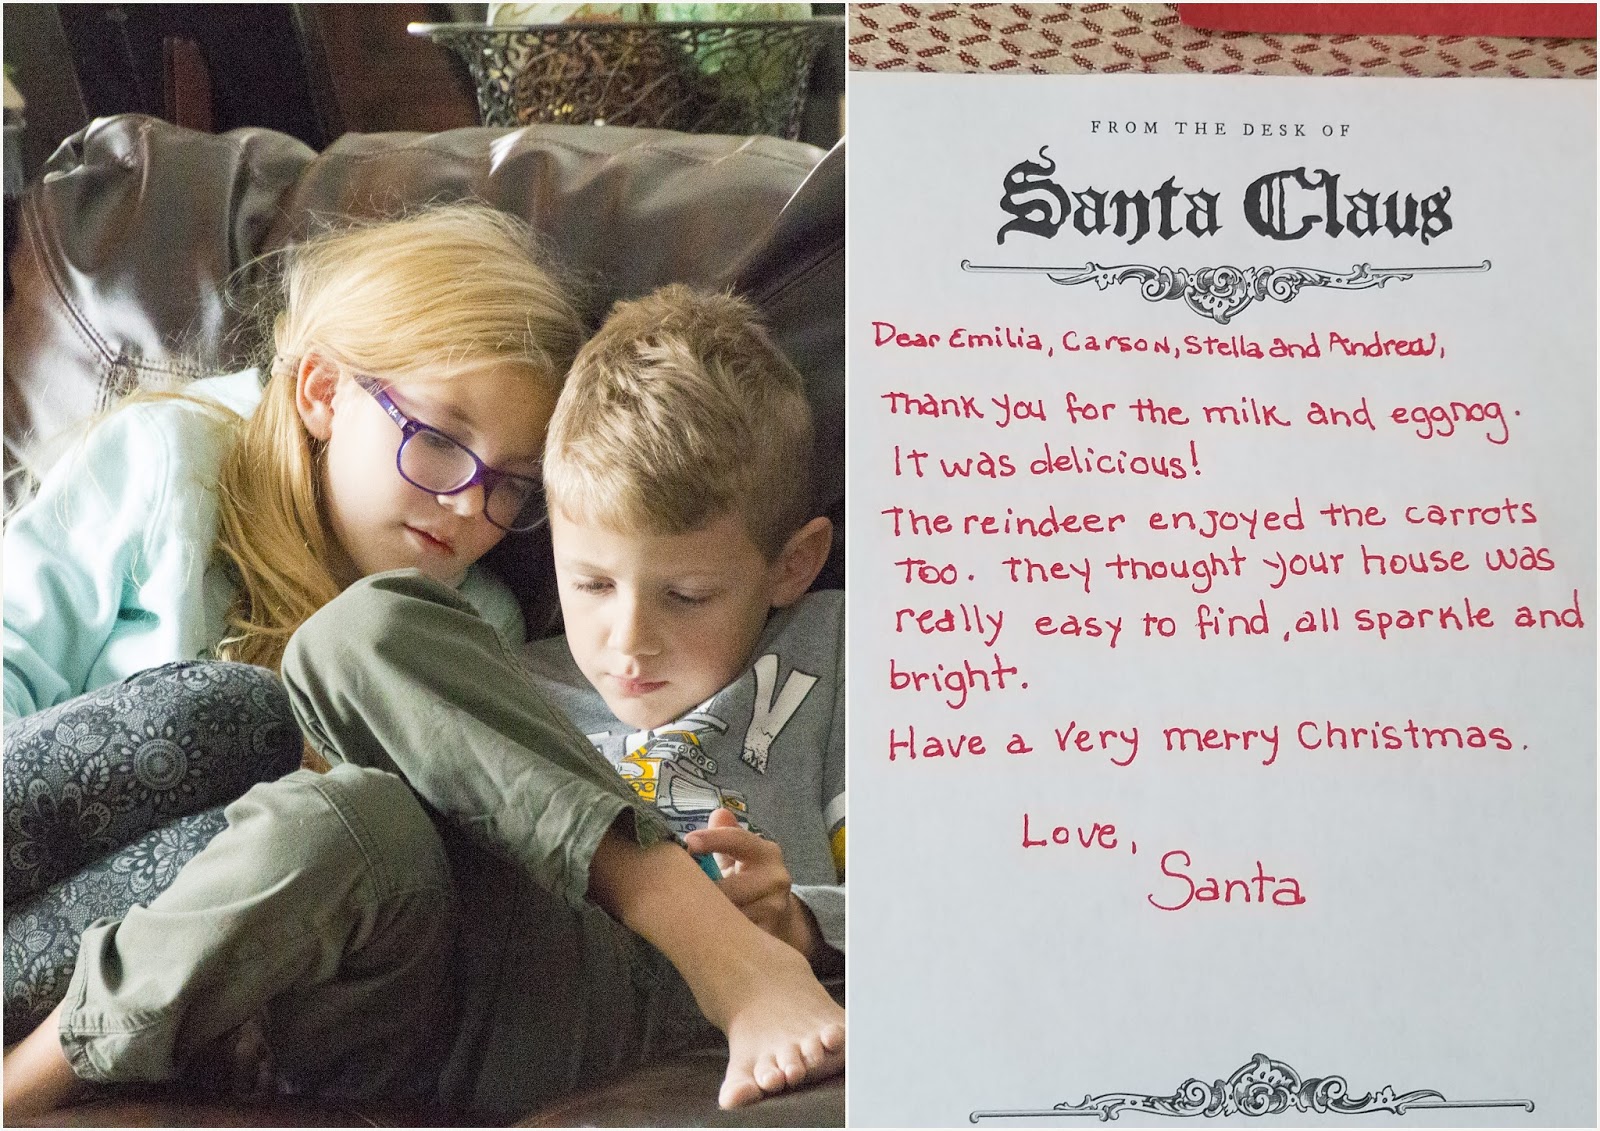 FROM THE DESK OF
Santa Claus
Dear Emilia, Carson, Stella and Andrew,
Thank you for the milk and eggnog.
It was delicious!
The reindeer enjoyed the carrots
too. They thought your house was
really easy to find, all sparkle and
bright.
Have a very merry Christmas.
Love,
Santa